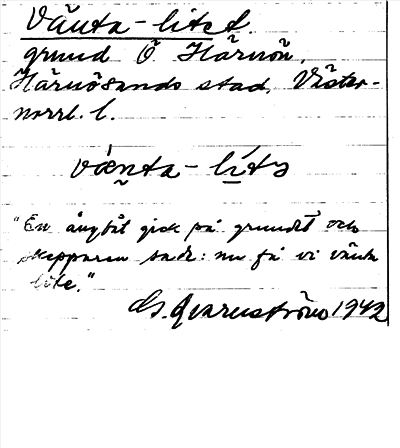 Vänta-litet.
grund Ö Härnön,
Härnösands stad, Väster-
norrl. l.
vänta- líts
"En ångbåt gick på grundet och
skepparen sade: nu få vi vänta
lite."
1942